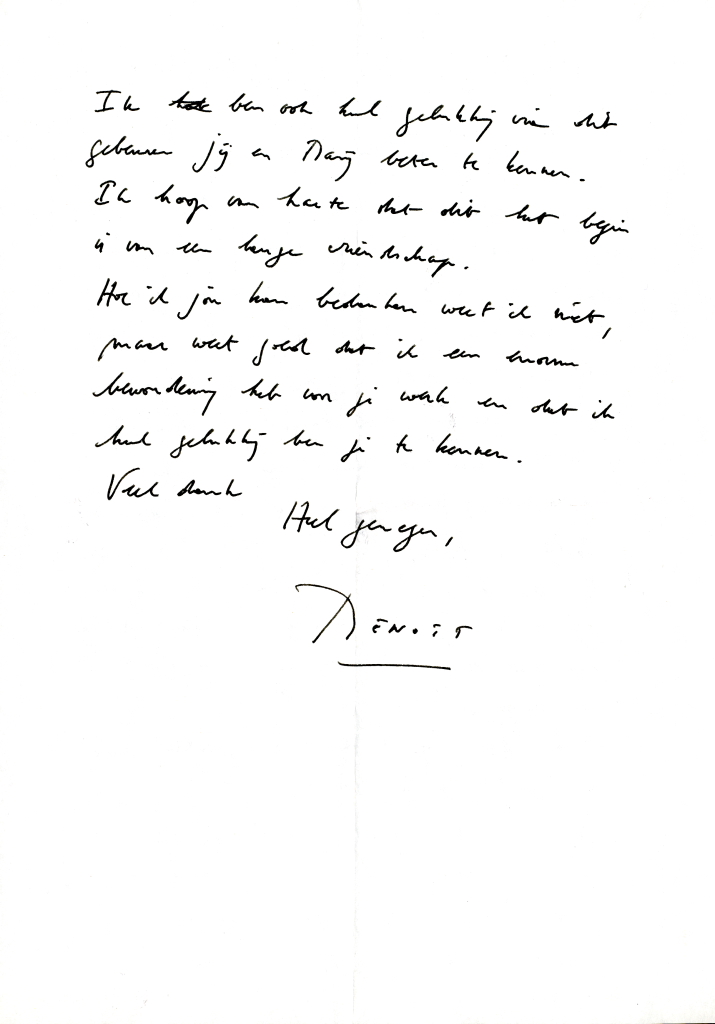 Ik ben ook heel gelukkig via dit
gebeuren jij en beter te kennen.
Ik hoop van harte dat dit het begin
is van een lange vriendschap.
Hoe ik jou kan bedanken weet ik niet,
maar weet goed dat ik een enorme
bewondering heb voor je werk en dat ik
heel gelukkig ben je te kennen.
Veel dank
Heel genegen,
BENOIT